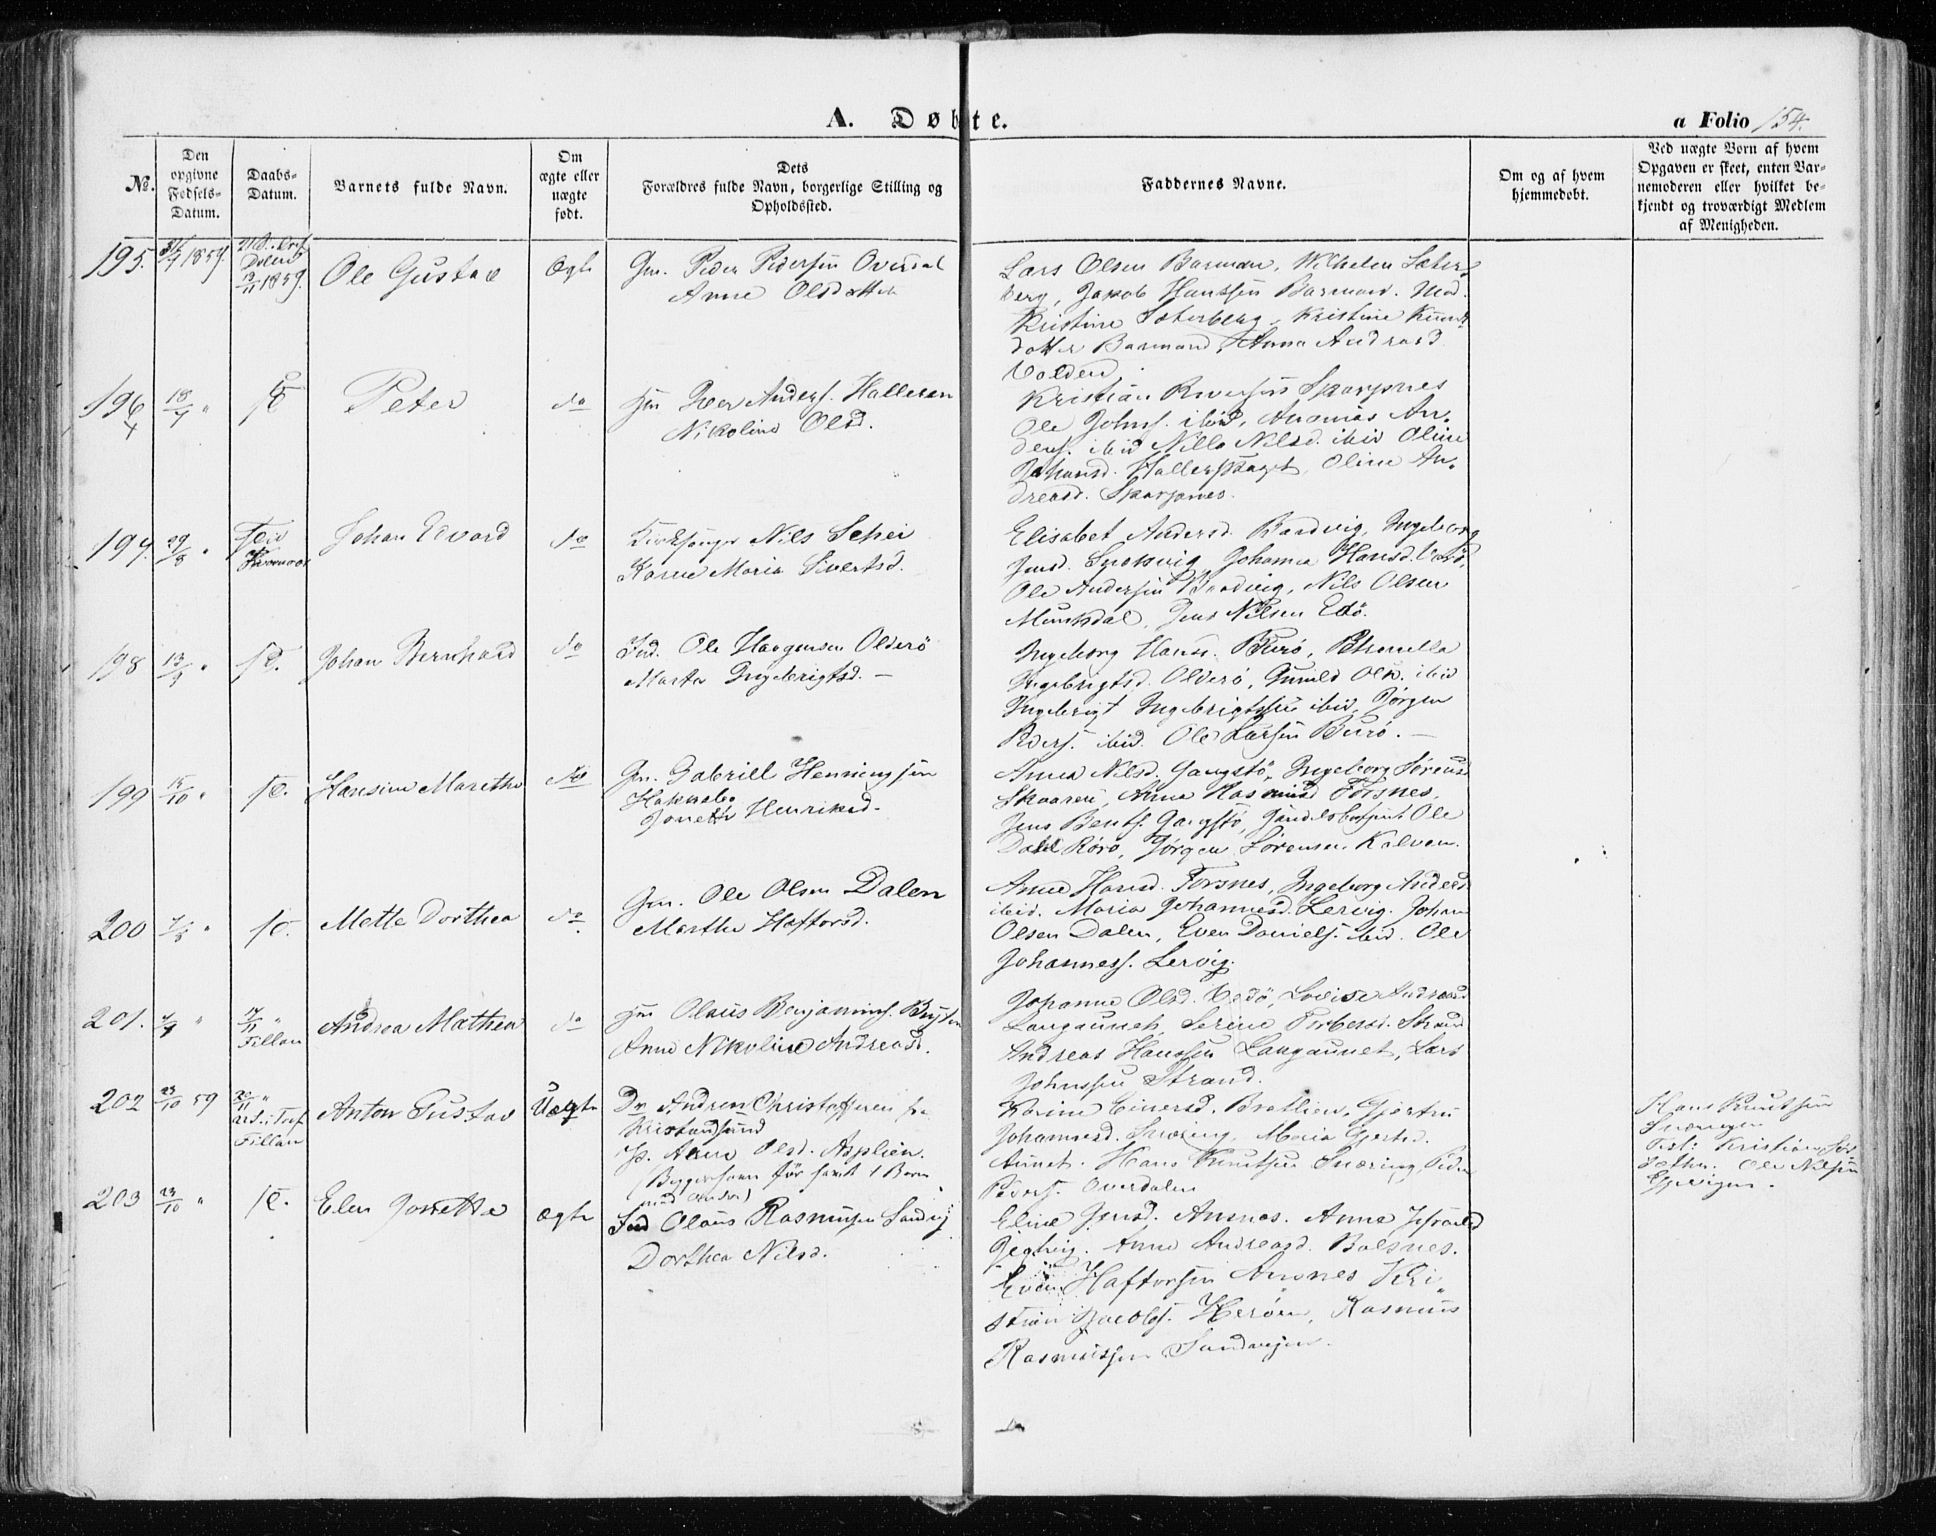 A. Døbte.
a Folio 154.
No.
Den opgivne Fødsels-Datum.
Daabs-Datum.
Barnets fulde Navn.
Om ægte eller uægte født.
Dets Forældres fulde Navn, borgerlige Stilling og Opholdssted.
Faddernes Navne.
Om og af hvem hjemmedøbt.
Ved uægte Børn af hvem Opgaven er skeet, enten Barnemoderen eller hvilket bekjendt og troværdigt Medlem af Menigheden.
195. 1859. 1859. Ole Gustav Ægte Gm. Peder Pedersen Overdal
Anne Olsdatter
Lars Olsen Barman, Wilhelm Sæter
berg, Jakob Hanssen Barman. Mad.
Kristine Sæterberg, Kristine Knuds
dotter Barmand, Anna Andreasd
Volden.
196 18/7 " Peter do Iver Anders. Halleren
Nikoline Olsd.
Kristian Iversen Skarpnes
Ole Johns. ibid, Ananias An-
ders. ibid Nille Nilsd. ibid Oline
Johansd. Hallerskaget, Oline An-
dreasd. Skarpnes.
197. 29/8 " Johan Edvard do Kirkesanger Nils Schei
Karen Maria Sivertsd.
Elisabet Andersd. Baadvig, Ingeborg
Jensd. Johanna Hansd.
Ole Andersen Baadvig, Nils Olsen
Munkdal, Jens Nilsen Edø.
198 13/9 " Johan Bernhard do Ind. Ole Haagensen Olderø
Marta Ingebrigtsd. —
Ingeborg Hansd. Burø, Petronella
Ingebrigtsd. Olderø, Gunild Ols. ibid
Ingebrigt Ingebrigtssen ibid, Jørgen
Peders. ibid. Ole Larsen Burø. —
199 15/10 " Hansine Marethe do Gm. Gabriel Henningsen
Jonetta Henriksd.
Anna Nilsd. Gangstø, Ingeborg Sørensd
Skaaren, Anne Rasmusd Forsnes,
Jens Bents. Gangstø, Ole
Dahl Rørø, Jørgen Sørensen Kalven.
200 " Mette Dorthea do. Gm. Ole Olsen Dalen
Marthe Haftorsd.
Anne Hansd. Forsnes, Ingeborg Andersd
ibid. Maria Johannesd. Lervig. Johan
Olsen Dalen, Even Daniels. ibid. Ole
Johanness. Lervig.
201. " 17/11 " Fillan Andrea Mathea do Olaus Benjamins.
Anne Nikoline Andreasd.
Johanne Olsd. Lovise Andreasd
Langaunet, Serine Torbersd. Strand
Andreas Hanssen Langaunet, Lars
Johnssen Strand.
202 23/10 59 20/11 " Fillan Anton Gustav Uægte Andreas Christoffersen fra
Kristiansund
P. Anne Olsd. Asplien.
(Begge har før havt 1 Barn
med andre)
Karine Einersd. Gjertru
Johannesd. Snæring, Maria
Aunet. Hans Knutsen Snæring, Peder
Peders. Overdalen
Hans Knutsen
Kristian
Ole Nilsen
203 23/10 " Elen Jonette Ægte Ind Olaus Rasmussen Sandvig
Dorthea Nilsd.
Eline Jensd. Ansnes. Anne
Anne Andreasd. Balsnes.
Even Haftorsen Ansnes Kri-
stian Jacobs. Herøen, Rasmus
Rasmussen Sandvigen.